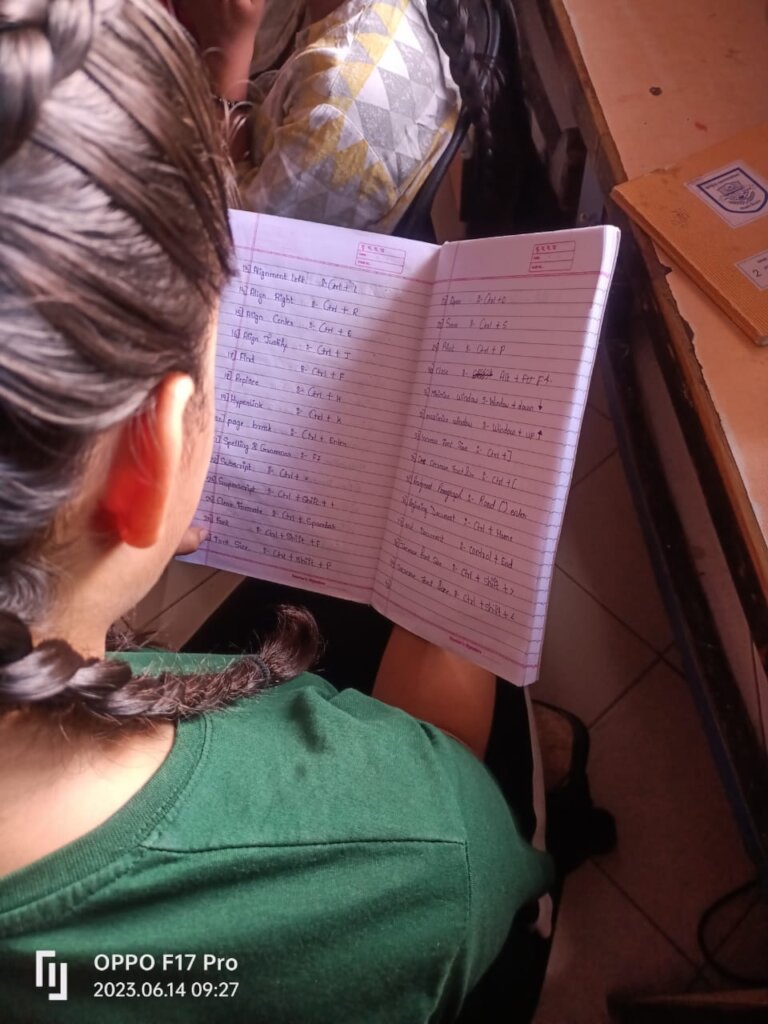 13) Alignment Left :- Ctrl + L
14) Align Right :- Ctrl + R
15) Align Center :- Ctrl + E
16) Align Justify :- Ctrl + J
17) Find :- Ctrl + F
18) Replace :- Ctrl + H
19) Hyperlink :- Ctrl + K
20) page break :- Ctrl + Enter
21) Spelling & Grammar :- F7
22) Subscript :- Ctrl + =
23) Superscript :- Ctrl + Shift + +
24) Clear Formate :- Ctrl + Spacebar
25) Font :- Ctrl + Shift + F
Font Size :- Ctrl + Shift + P
Open :- Ctrl + O
Save :- Ctrl + S
Print :- Ctrl + P
Close :- Alt + F4
window :- Window + down ↓
window :- Window + up ↑
Font Size :- Ctrl + ]
Font Size :- Ctrl + [
Paragraph :-
Document :- Ctrl + Home
End Document :- Control + End
Increase Font Size :- Ctrl + Shift + >
Font Size :- Ctrl + Shift + <
2
OPPO F17 Pro
2023.06.14 09:27